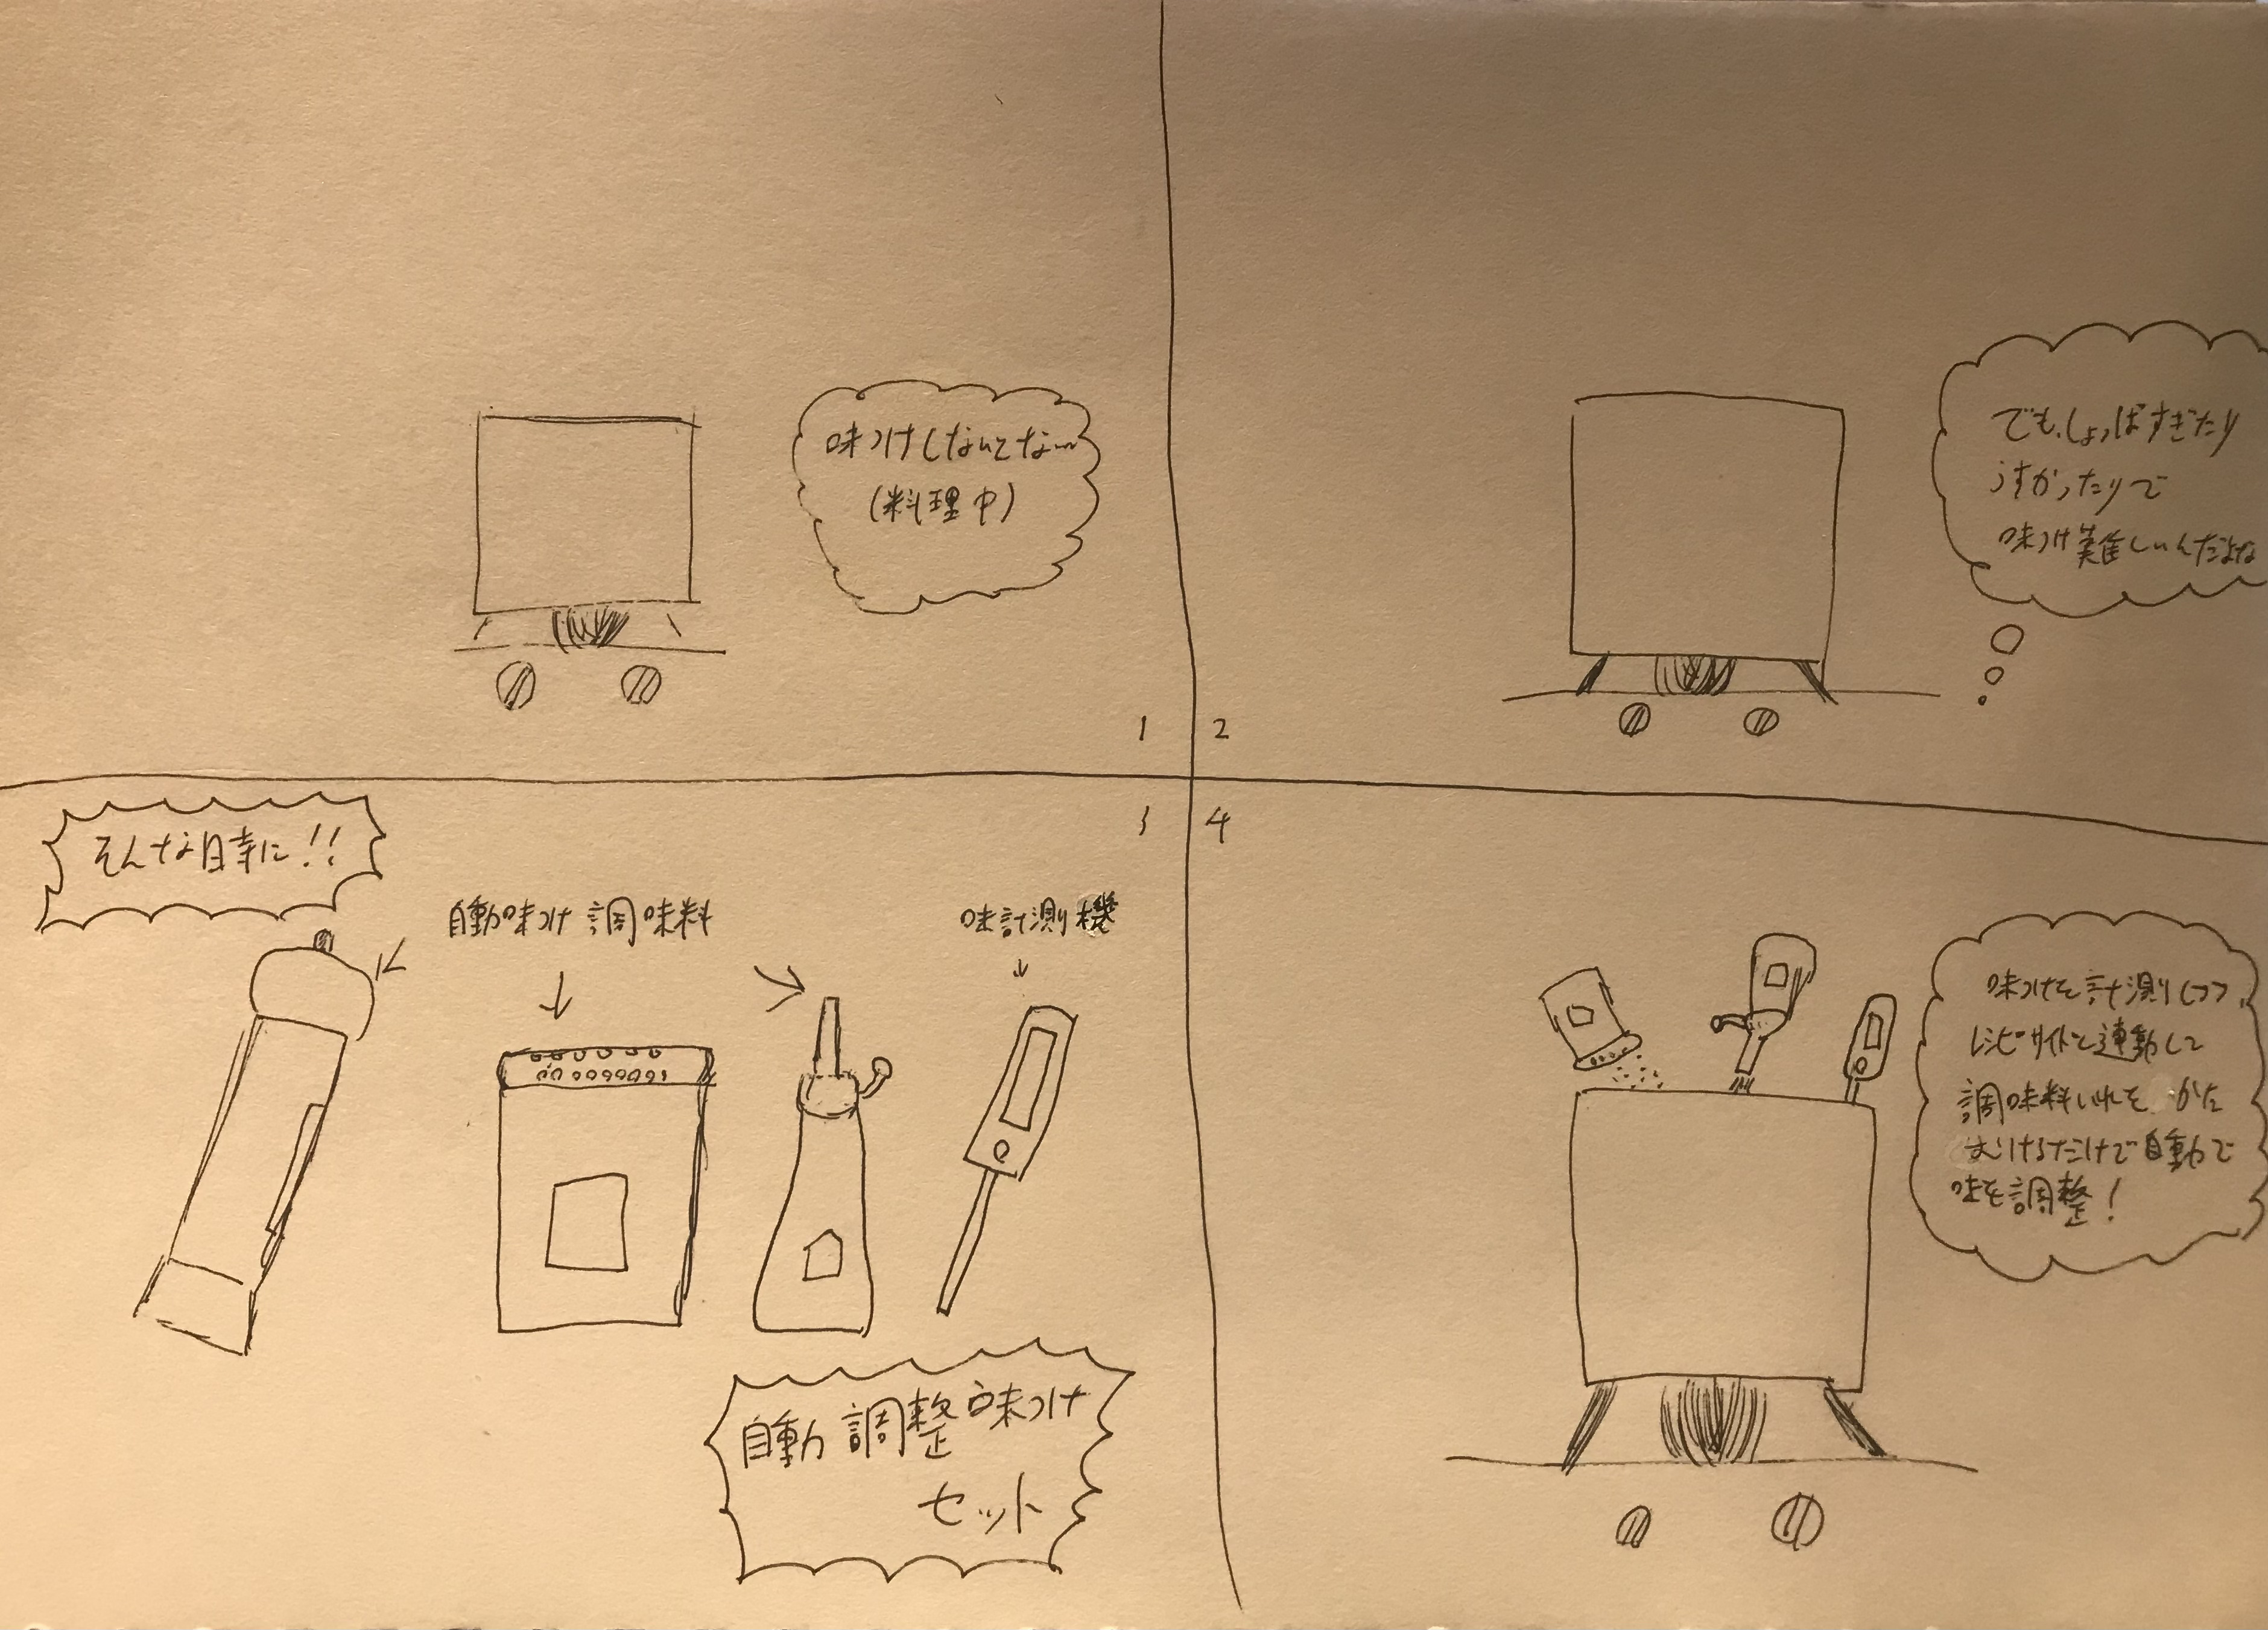 味つけしないとなー
(料理中)
1
2
でも、しょっぱすぎたり
うすかったりで
味つけ難しいんだよな
3
そんな時に!!
自動味つけ調味料
味計測機
自動調整味つけ
セット
4
味つけを計測しつつ
レシピサイトと連動して
調味料いれを かた
むけるだけで自動で
味を調整!